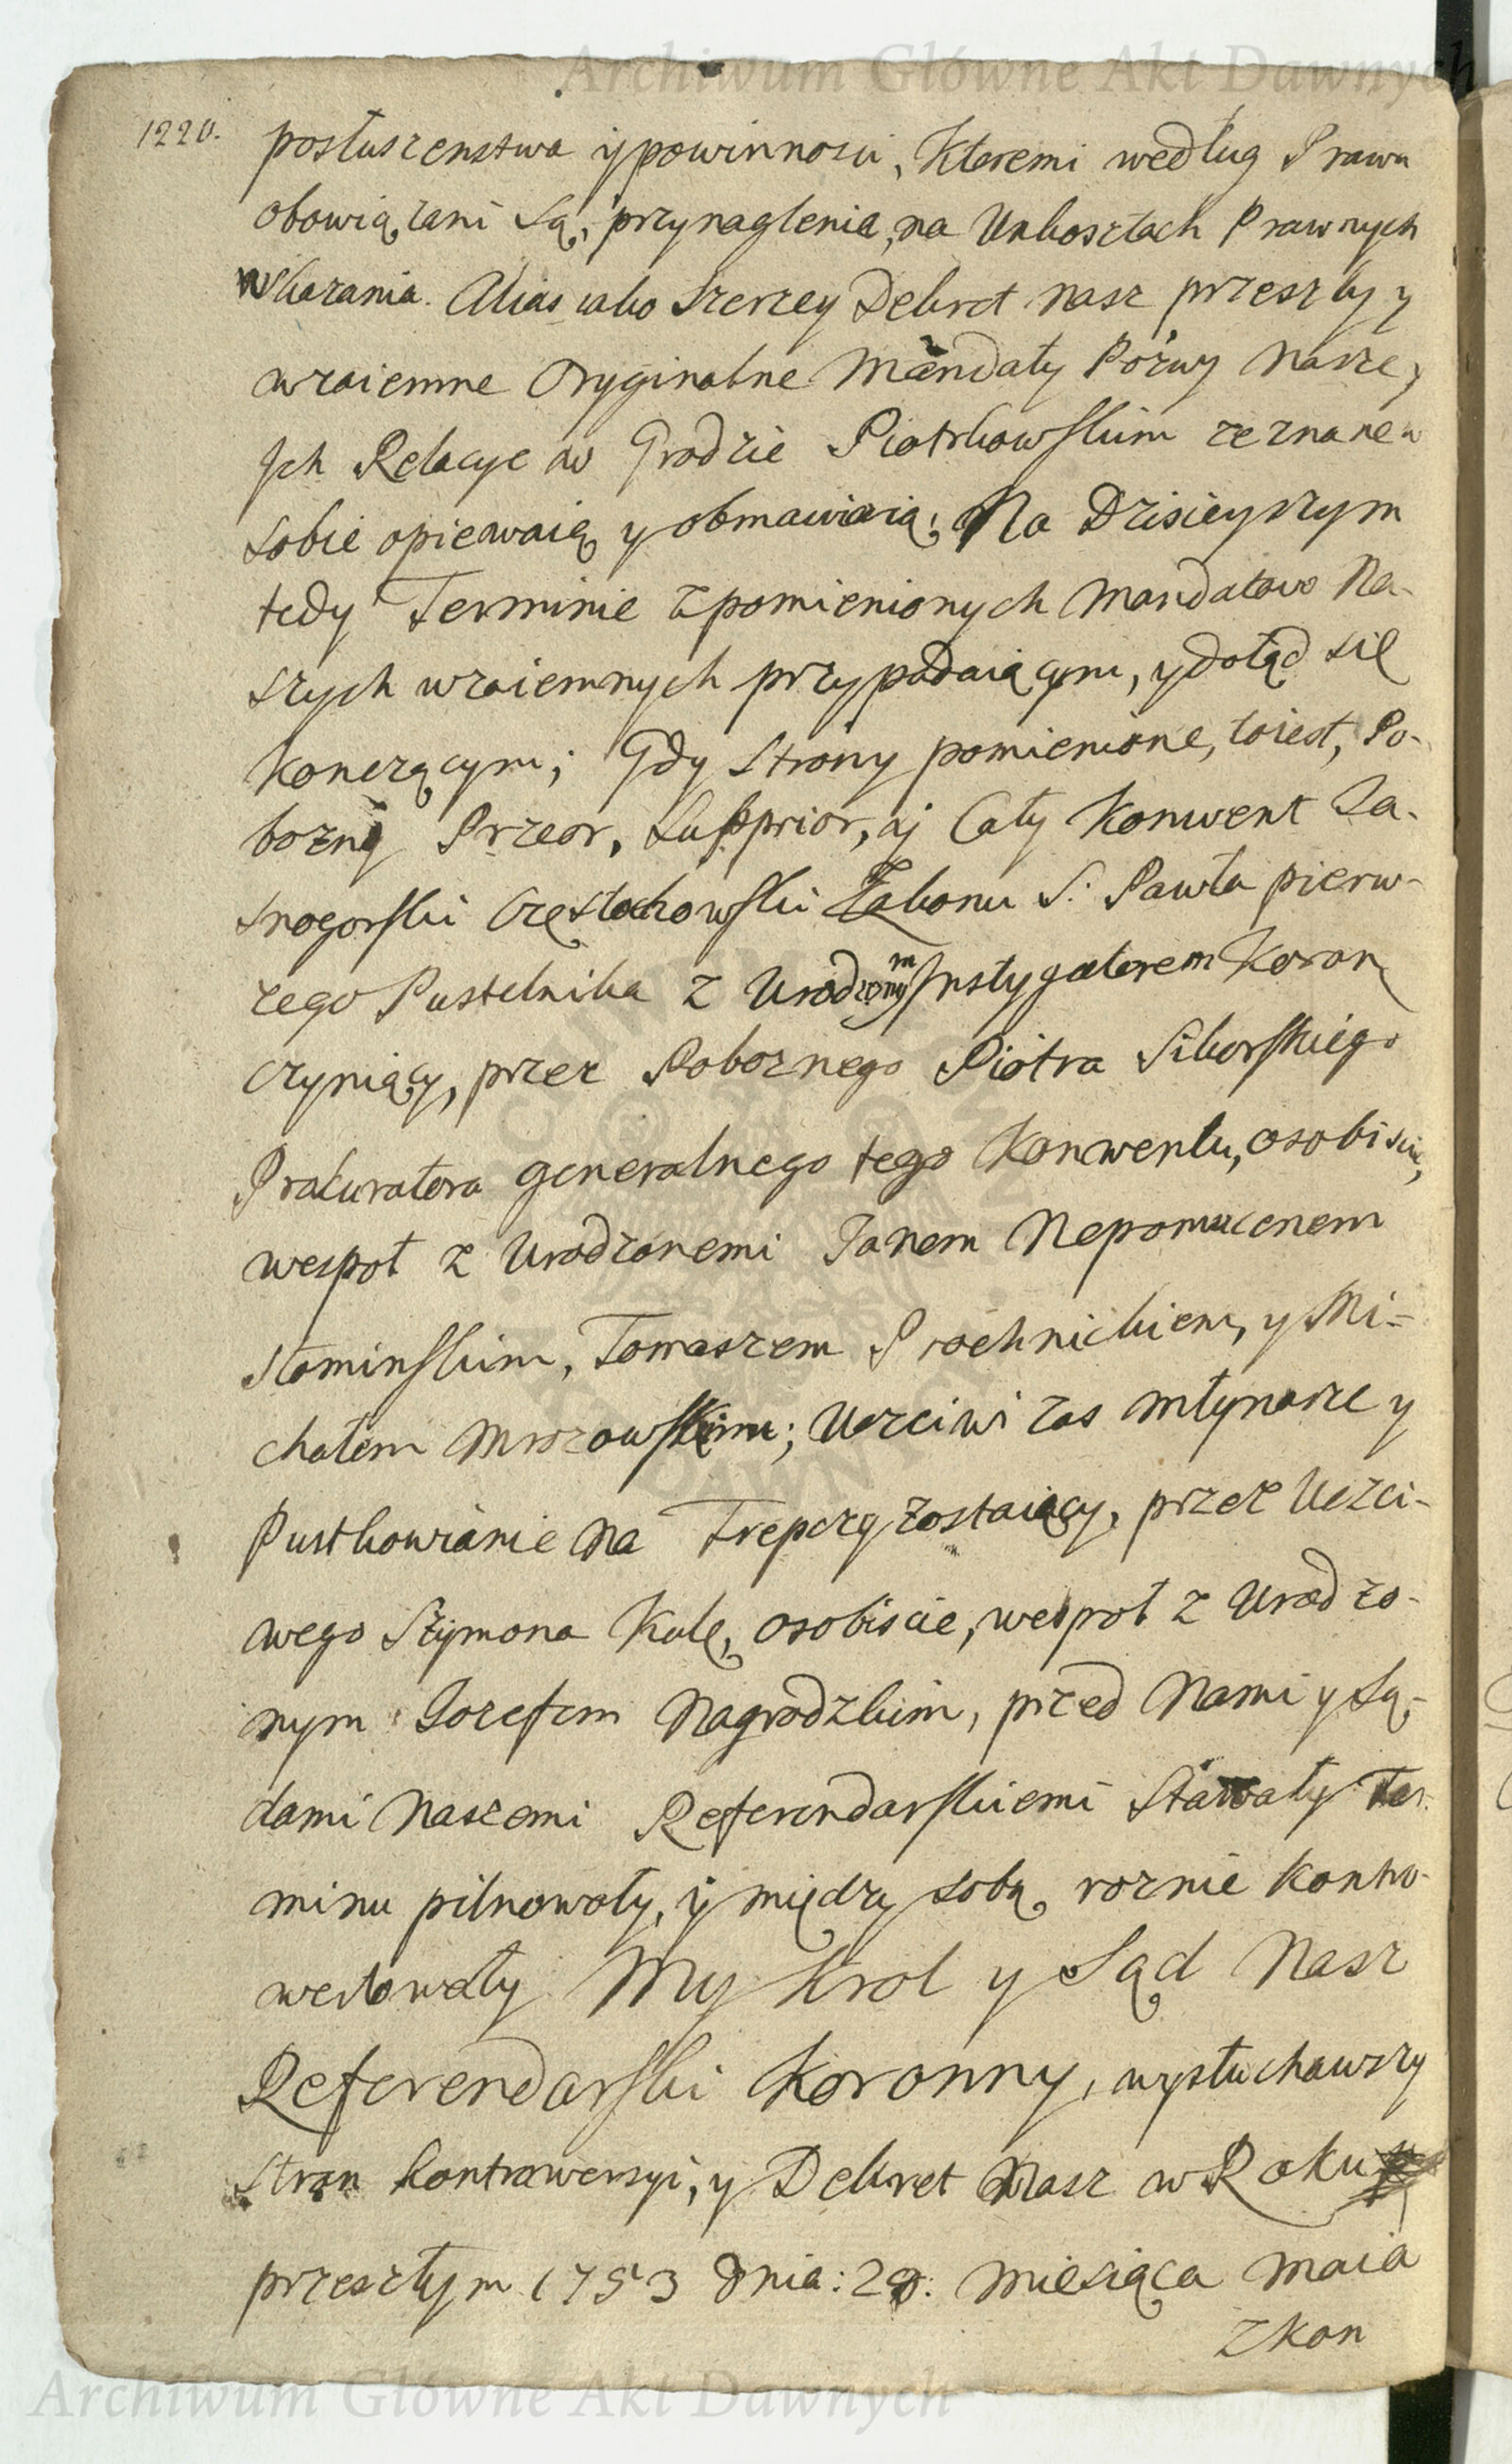 Archiwum Główne Akt Dawnych
1220.
posłuszenstwa y powinnosci, Ktoremi według Prawa
obowiązani są, przynaglenia, na Unkosztach Prawnych
wskazania. Alias iako szerzey Dekret nasz przeszły y
wzaiemne Oryginalne Mandaty Pozwy Nasze, y
Jch Relacye w Grodzie Piotrkowskim zeznane w
sobie opiewaią y obmawiaią; Na Dzisieyszym
tedy Terminie z pomienionych Mandatow Na-
szych wzaiemnych przypadaiącym, y dotąd się
konczącym; Gdy strony pomienione, to iest, Po-
bozny Przeor, Supprior, y Cały Konwent Ja-
snogorski Częstochowski Zakonu S. Pawła pierw-
szego Pustelnika z Urodzonym Jnstygatorem Koron
czyniący, przez Poboznego Piotra Sikorskiego
Prokuratora generalnego tego Konwentu, osobiscie,
wespoł z Urodzonemi Janem Nepomucenem
Słominskim, Tomaszem Prochnickiem, y Mi-
chałem Mrozowskim; Uczciwi zas Młynarze y
Pustkowianie na Trepczy zostaiący, przez Uczci-
wego Szymona Kulę, osobiscie, wespoł z Urodzo-
nym Jozefem Nagrodzkim, przed Nami y Są-
dami Naszemi Referendarskiemi Stawały Ter-
minu pilnowały, y między sobą roznie kontro-
wertowały My Krol y Sąd Nasz
Referendarski Koronny, wysłuchawszy
stron kontrowersyi, y Dekret Nasz w Roku
przeszłym 1753 dnia: 29: Miesiąca Maia
zkon
Archiwum Główne Akt Dawnych